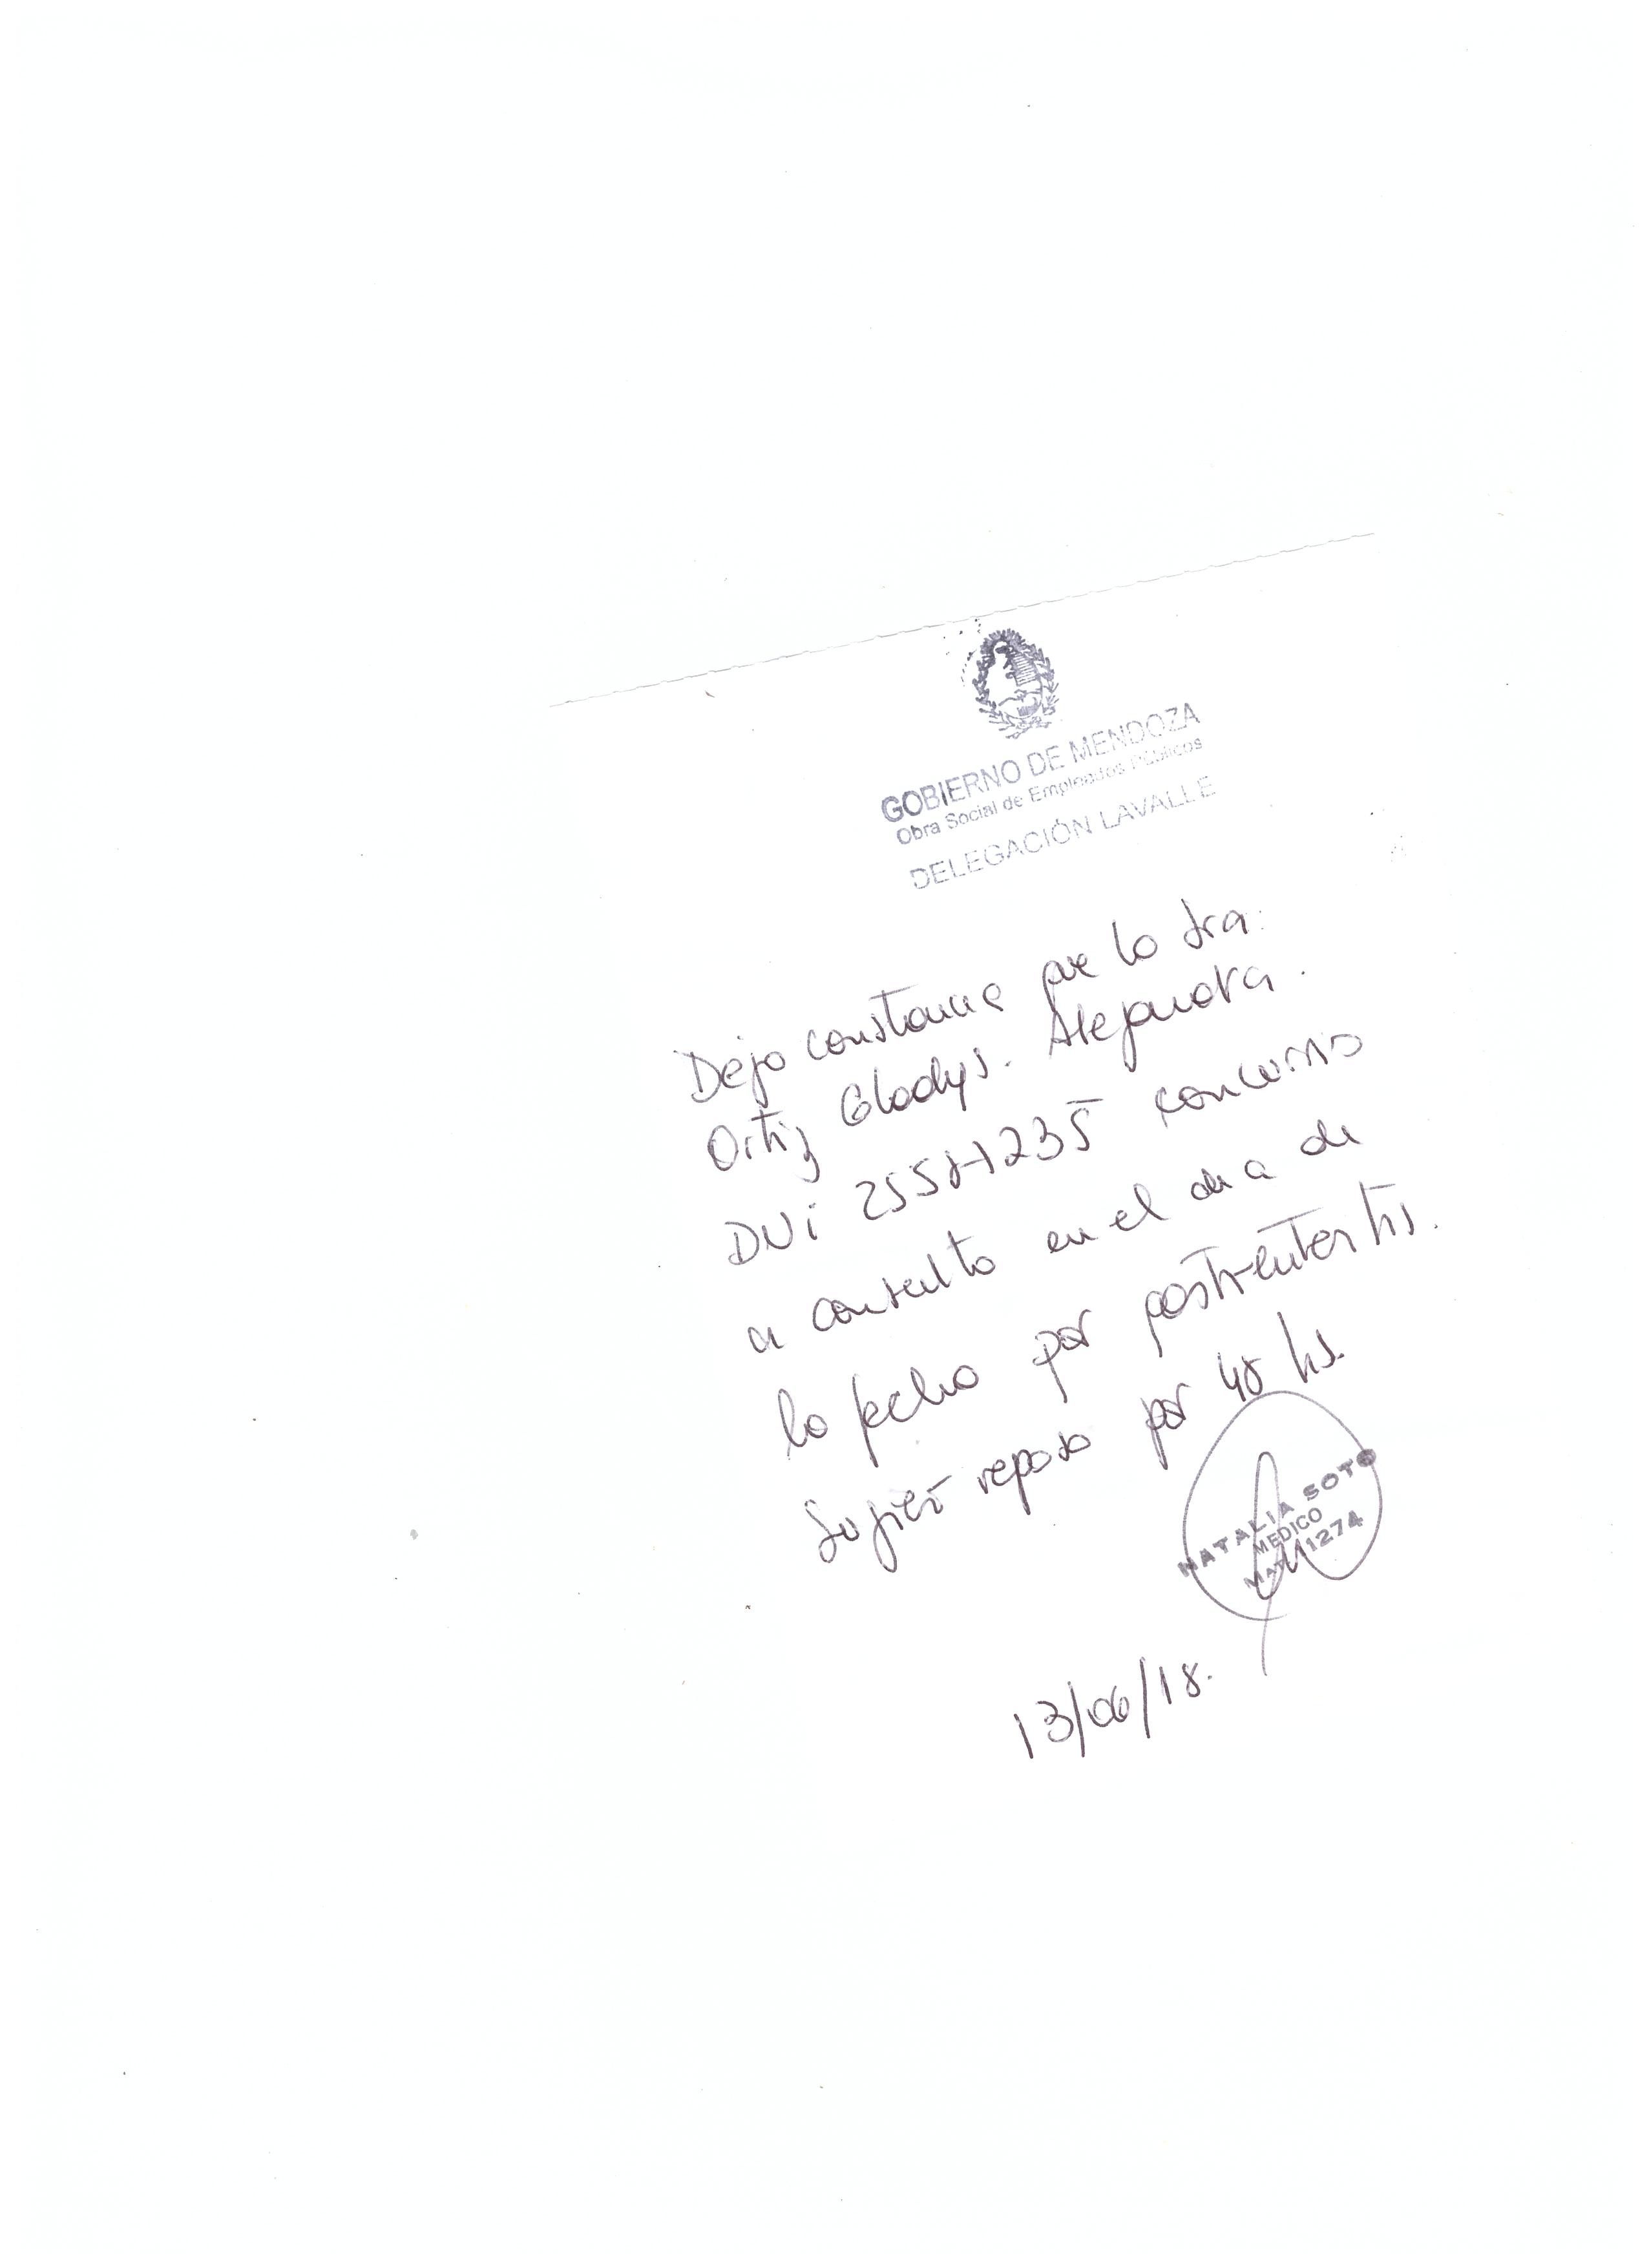 GOBIERNO DE MENDOZA
Obra Social de Empleados Públicos
DELEGACIÓN LAVALLE
Dejo constancia que la Sra:
Ortiz Gladys. Alejandra.
DNi concurrió
a consulta en el dia de
la fecha por gastroenteritis.
Sugiero reposo por 48 hs.
NATALIA SOTO
MEDICO
MAT 11274
13/06/18.